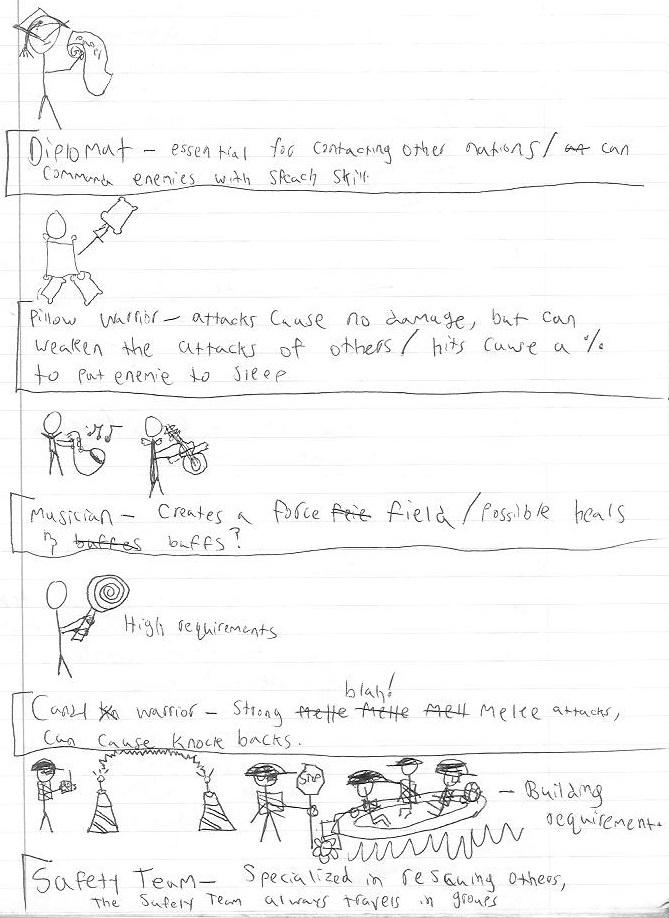 Diplomat – essential for contacting other nations/ can
command enemies with Speach Skill
Pillow warrior – attacks cause no damage, but can
weaken the attacks of others/ hits cause a %
to put enemie to sleep
Musician – Creates a force field/Possible heals
n buffs?
High requirements
blah!
Candy warrior – Strong Melee attacks,
Can Cause Knock backs.
STOP
– Building
requirement.
Safety Team – Specialized in rescuing others,
The Safety Team always travels in groups